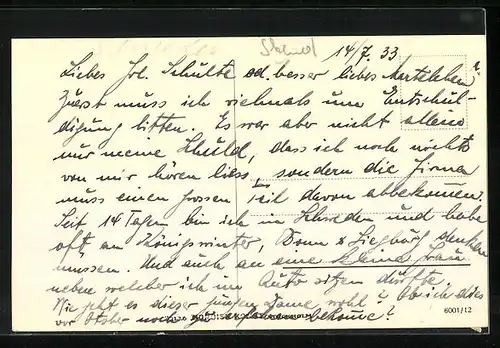 14/7. 33
Liebes Frl. Schulte od. besser liebes
Zuerst muss ich vielmals um Entschul-
digung bitten. Es war aber nicht allein
nur meine Schuld, dass ich noch nichts
von mir hören liess, sondern die Firma
muss einen grossen Teil davon abbekommen.
Seit 14 Tagen bin ich in Schweden und habe
oft an Königswinter, Bonn & Siegburg denken
müssen. Und auch an eine kleine Frau
neben welcher ich im Auto sitzen durfte.
Wie geht es dieser jungen Dame wohl u. ob ich dies
vor Oktober noch
6001/12